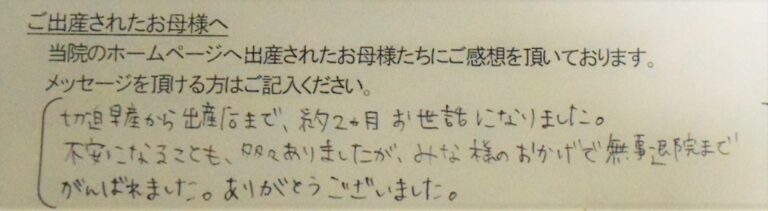 ご出産されたお母様へ
当院のホームページへ出産されたお母様たちにご感想を頂いております。
メッセージを頂ける方はご記入ください。
切迫早産から出産店まで、約2ヵ月お世話になりました。
不安になることも、多々ありましたが、みな様のおかげで無事退院まで
がんばれました。ありがとうございました。